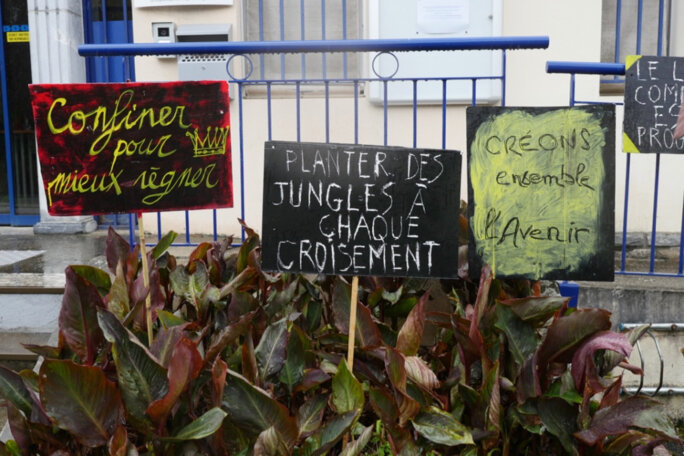 Confiner
pour
mieux régner
PLANTER DES
JUNGLES À
CHAQUE
CROISEMENT
CRÉONS
ensemble
l'Avenir
LE L
COM
ES
PROG